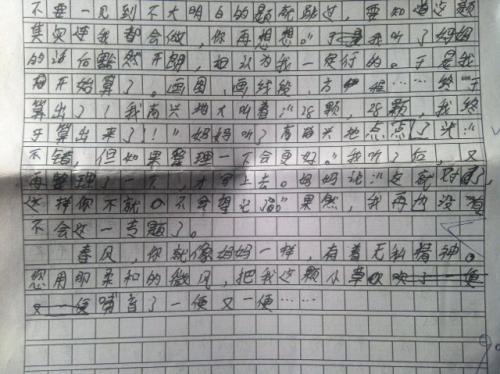 不要一见到不大明白的题就跳过，要知道这题
其实连我都会做，你再想想。”于是我听了妈妈
的话后豁然开朗，相认为我一定行的。于是我
开始算了。画图，画线络，方……终于
算出了！我高兴地大叫着：“28颗，28颗，我终
于算出来了！！”妈妈听了高兴地点点了头：“
不错，但如果整理一下会更好。”我听了后，又
再整理了一下，才写上去。妈妈说：“这就对了，
这样你不就不会忘记 果然，我再也没有
不会好一考题了。
春风，你就像妈妈一样，有着无私精神。
您用那柔和的微风，把我这颗小草吹了一便
又一便哺育了一便又一便……